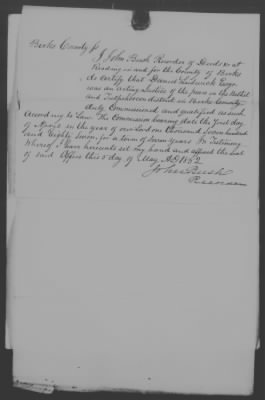 Berks County ss
I John Bush Recorder of Deeds &c at
Reading in and for the County of Berks
do certify that Daniel Esqr
was an acting Justice of the peace in the Bethel
and Tulpehoccon district in Berks County
duly Commissioned and qualified as such
According to Law. The Commission bearing date the first day
of in the year of our Lord one thousand Seven hundred
and Eighty Seven, for a term of Seven years In Testimony
Whereof I have hereunto set my hand and affixed the Seal
of said Office this 5th day of May AD 1852
John Bush
Recorder